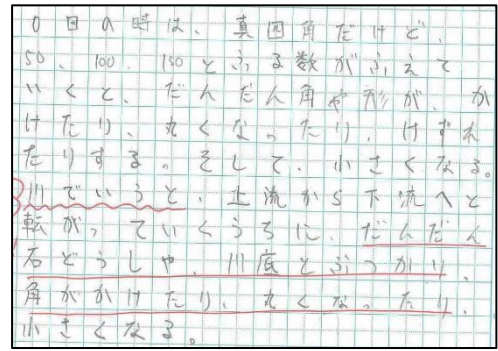 0回の時は、真四角だけど、
50、100、150とふる数がふえて
いくと、だんだん角や形が、か
けたり、丸くなったり、けずれ
たりする。そして、小さくなる。
川でいうと、上流から下流へと
転がっていくうちに、だんだん
石どうしや、川底とぶつかり、
角がかけたり、丸くなったり、
小さくなる。